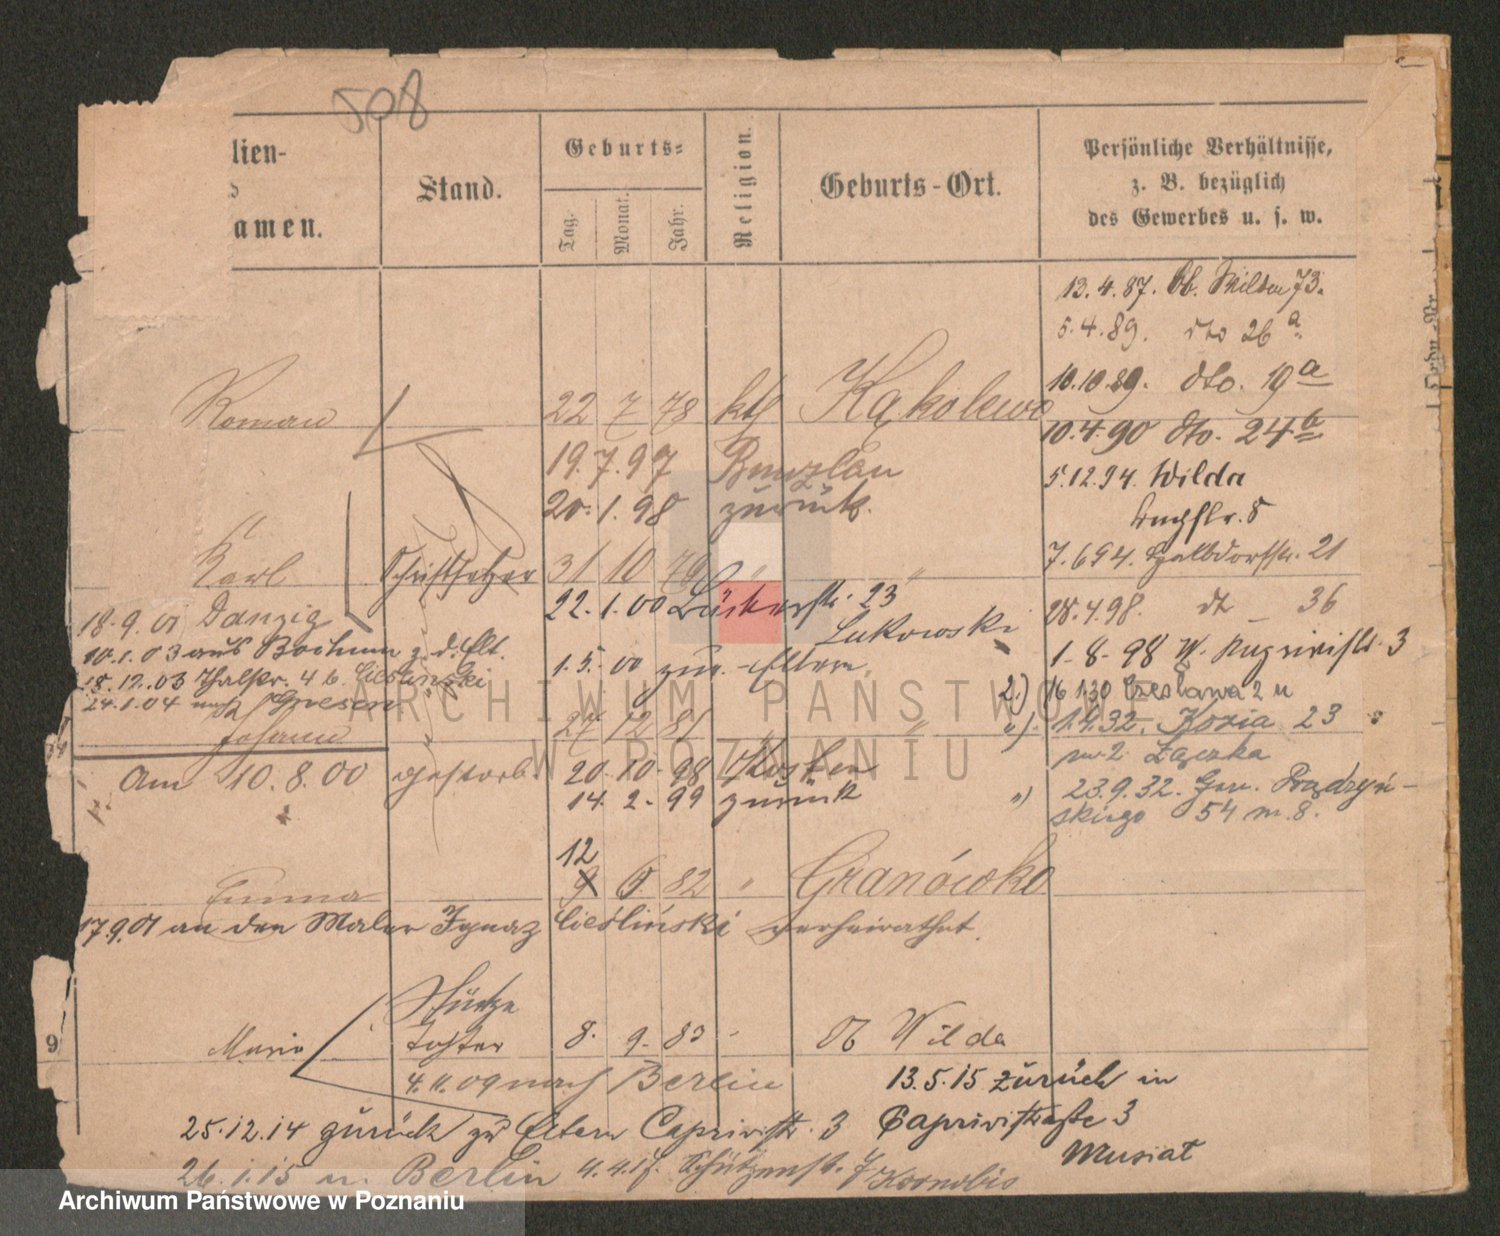 508
lien-
s
amen.
Stand.
Geburts-
Tag.
Monat.
Jahr.
Religion.
Geburts-Ort.
Persönliche Verhältnisse,
z. B. bezüglich
des Gewerbes u. s. w.
13.4.87. Ob. Wilda 73.
5.4.89. dto 26 a
10.10.89. dto. 19 a
Roman 22 7 78 kth Kąkolewo
10.4.90 dto. 24 b
19.7.97 Bunzlau
5.12.94. Wilda
20.1.98 zurück.
8
Karl Schriftsetzer 31 10 79 " "
21
22.1.00 23
28.4.98. dt 36
18.9.01 Danzig
Lukowski
10.1.03 aus Bochum z. d. Elt.
1.5.00 zur. Eltern
1.8.98 W. 3
18.12.03 Thalstr. 4 b. Cieslinski
2.) 16 1 30 Czesława 2 m
24.1.04 nach Gnesen
Johann 27 12 81 " "
") 1.4.32. Kozia 23
m. 2 Łączka
Am 10.8.00 gestorb.
20.10.98 Kosten
14.2.99 zurück
") 23.9.32. Gen. Prądzyń-
skiego 54 m. 8.
12
Emma 9 5 82 " Granówko
17.9.01 an den Maler Ignaz Cieśliński verheirathet.
Stütze
Marie Tochter 8. 9. 83 - Ob Wilda
9
4.11.09 nach Berlin
13.5.15 zurück in
25.12.14 zurück zu Eltern Caprivistr. 3
Caprivistraße 3
Musiat
26.1.15 n. Berlin
Schützenstr. 7
ARCHIWUM PAŃSTWOWE
W POZNANIU
Archiwum Państwowe w Poznaniu